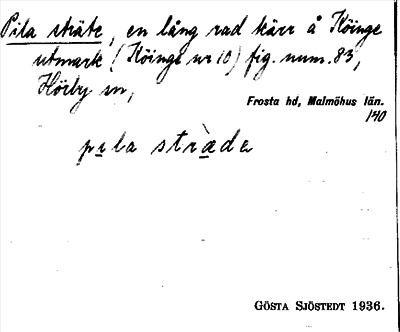 Pila sträte, en lång rad kärr å Köinge
utmark (Köinge nr 10) fig. num. 83,
Hörby sn,
Frosta hd, Malmöhus län.
140
pila sträde
GÖSTA SJÖSTEDT 1936.